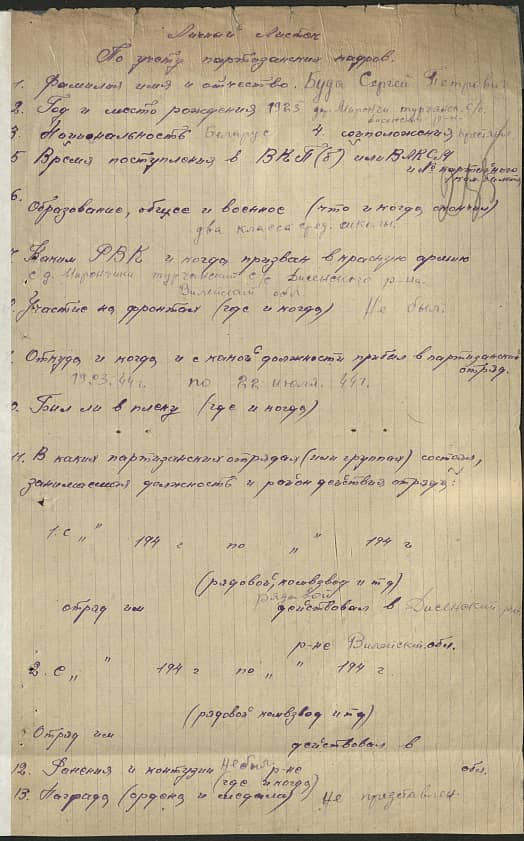 Личный Листок
По учету партизанских кадров.
1. Фамилия имя и отчество. Буда Сергей Петрович
2. Год и место рождения 1925 д. Мирончи турчанск. С/с.
3 Национальность Беларус 4. соцположения крестьян
5 Время поступления в ВКП(б) или ВЛКСМ
и № партийного
6.
Образование, общее и военное (что и когда окончил)
два класса сред. школы.
7. Каким РВК и когда призван в красную армию
с д. Мирончики турчанский с/с Дисенского р-на.
Вилейской обл
8. Участие на фронтах (где и когда) Не был.
9. Откуда и когда и с какой должности прибыл в партизанский
отряд.
19.03.44 г. по 22 июля. 44 г.
10. Был ли в плену (где и когда)
11. В каких партизанских отрядах (или группах) состоял,
занимаемая должность и район действий отряда:
1. С „ “ 194 г по „ “ 194 г
(рядовой, комвзвод и тд)
рядовой
отряд им действовал в Дисенский
р-не Вилейск. обл.
2. С „ “ 194 г по „ “ 194 г.
(рядовой комвзвод и тд)
Отряд им
действовал в
12. Ранения и контузии Не был р-не обл.
(где и когда)
13. Награда (ордена и медали) Не представлен.